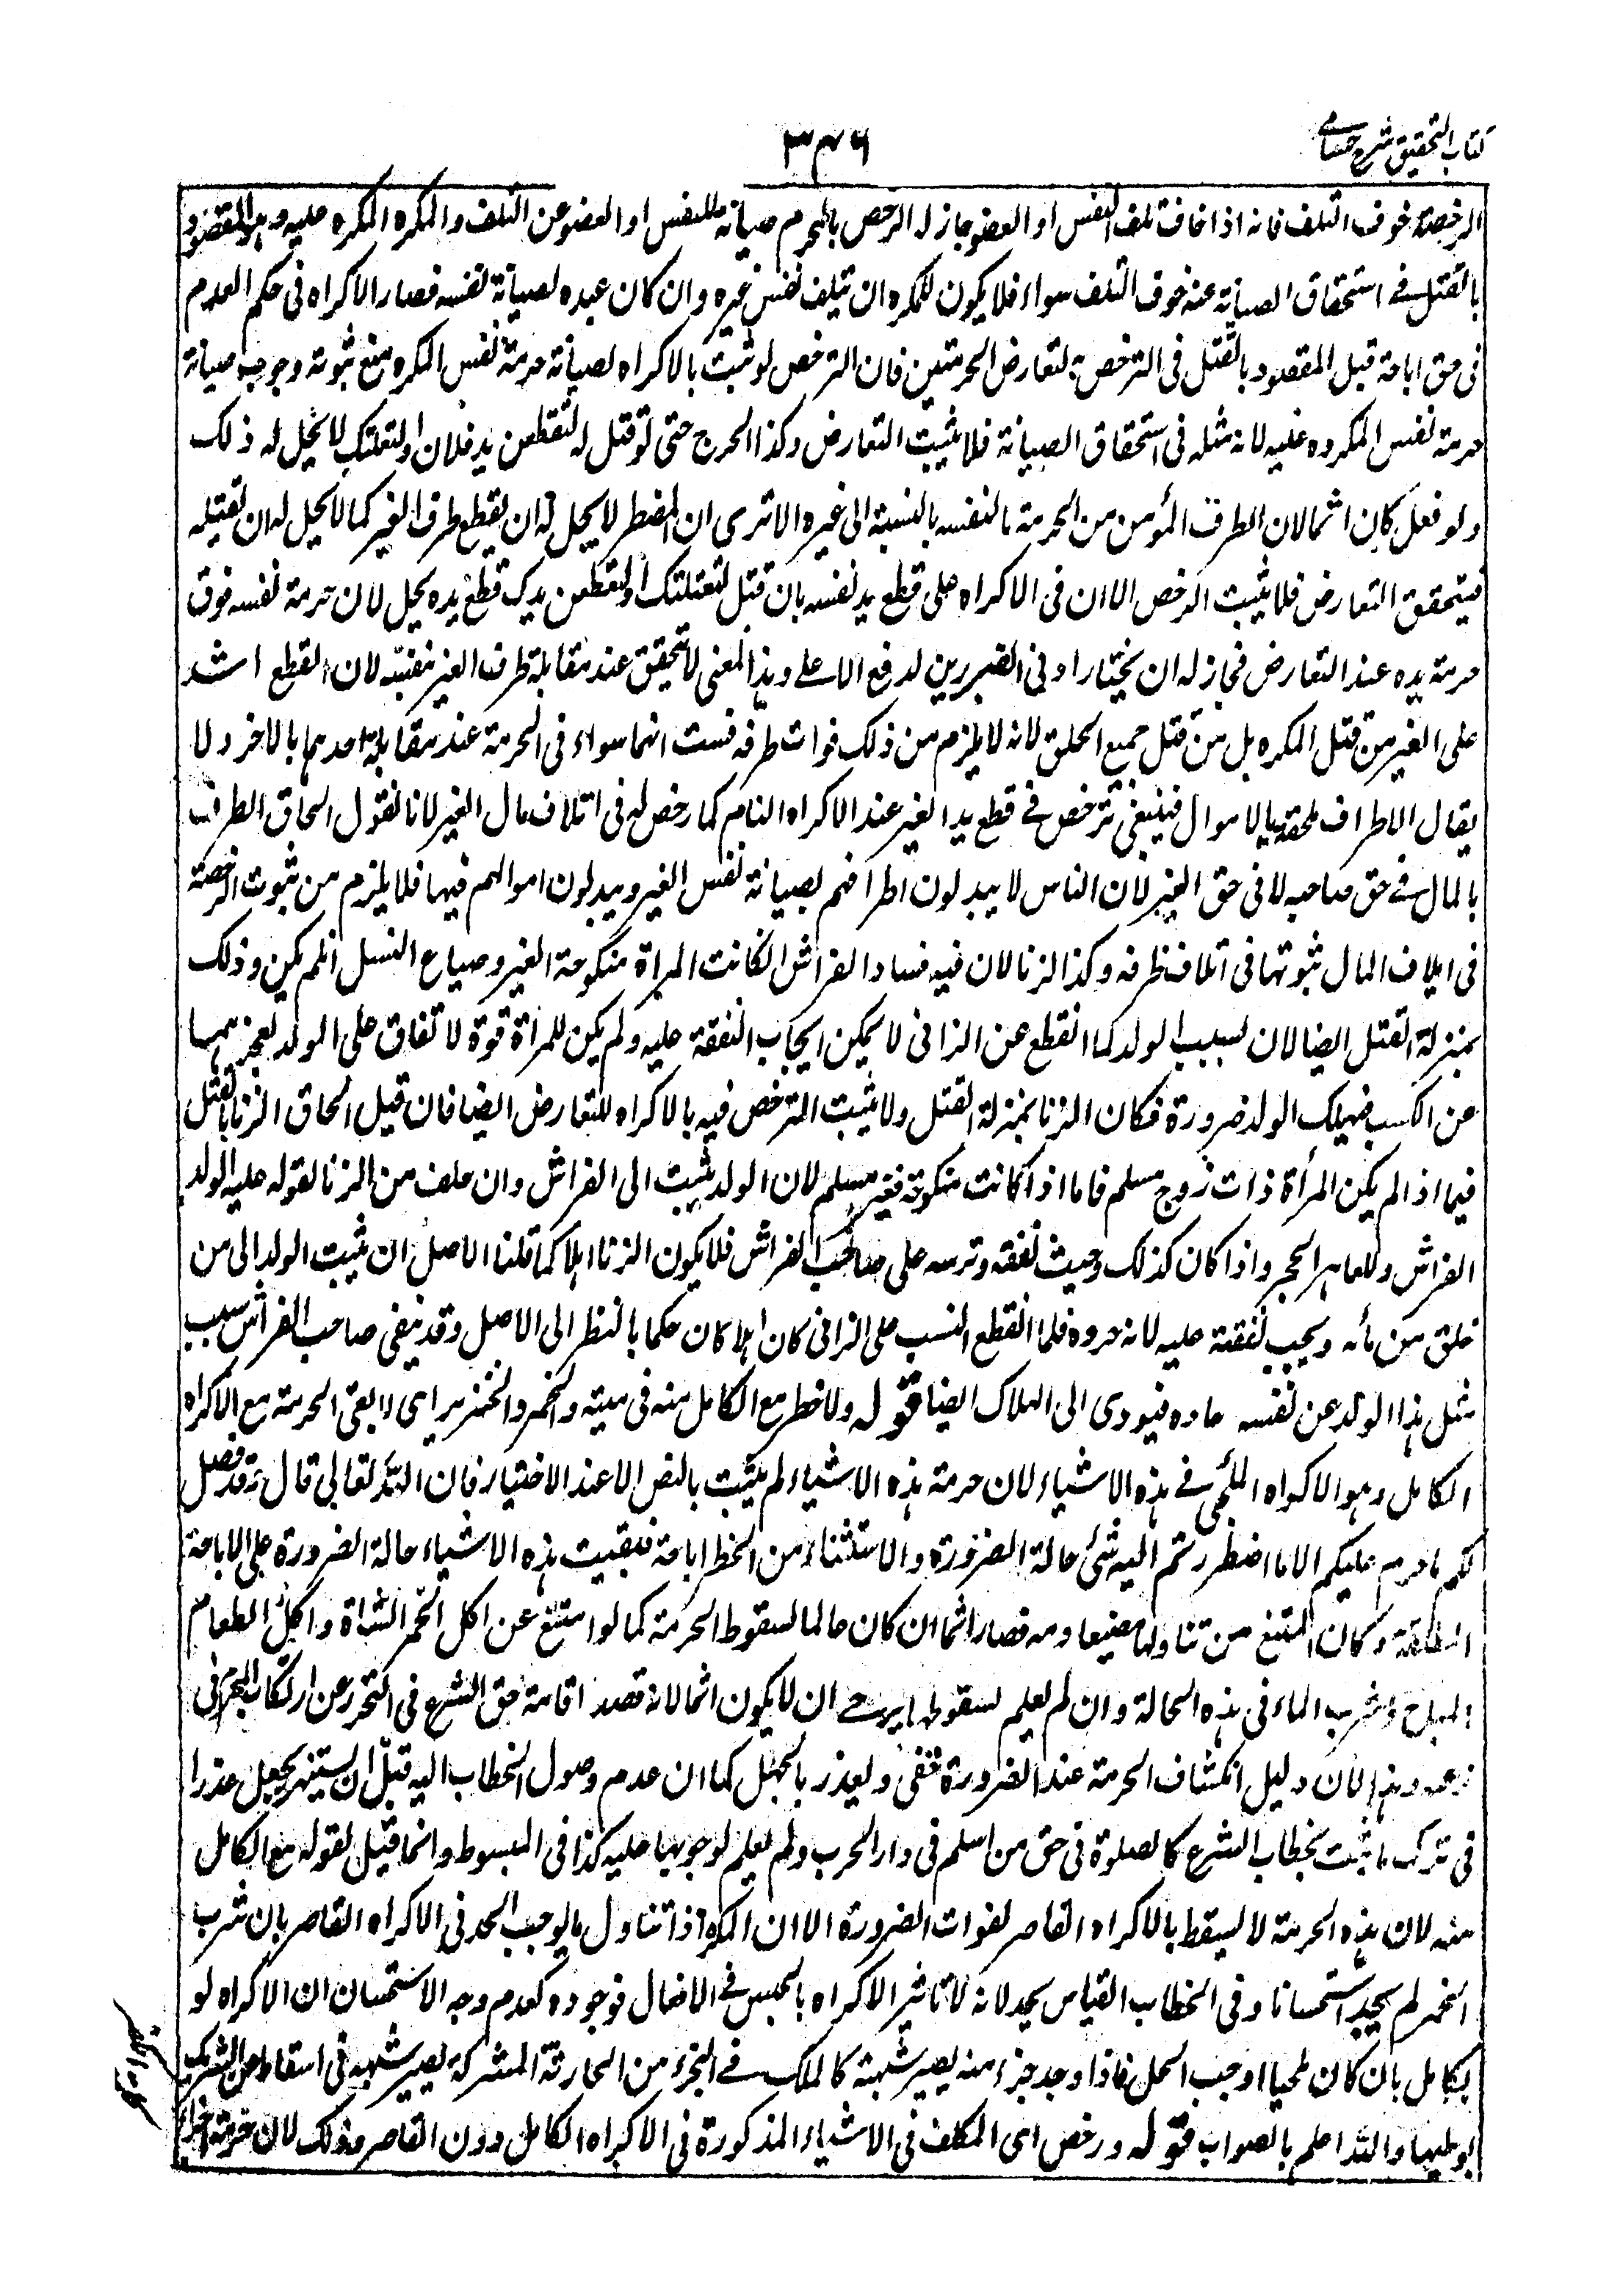 كتاب التحقيق شرح حسامي
٣٤٦
الرخصة خوف التلف فانه اذا خافت تلف النفس او العضو جاز له الرخص بالمحرم صيانة للنفس او العضو عن التلف والمكره المكره عليه وهو المقصود
بالقتل في استحقاق الصيانة عنه خوف التلف سواء فلا يكون للمكره ان يتلف نفس غيره وان كان عبده لصيانة نفسه فصار الاكراه في حكم العدم
في حق اباحة قبل المقصود بالقتل في الترخص لتعارض الحرمتين فان الترخص لو ثبت بالاكراه لصيانة حرمة نفس المكره منع ثبوته وجوب صيانة
حرمة نفس المكروه عليه لانه مثله في استحقاق الصيانة فلا يثبت التعارض وكذا الحرج حتى لو قتل له لتقطعن يد فلان او لتقلتك لا يحل له ذلك
ولو فعل كان اثما لان الطرف المؤمن من الحرمة ما لنفسه بالنسبة الى غيره الا ترى ان المضطر لا يحل له ان يقطع طرف الغير كما لا يحل له ان يقتله
فيتحقق التعارض فلا يثبت الرخص الا ان في الاكراه على قطع يد نفسه بان قتل لتقتلتك او لتقطعن يدك قطع يده يحل لان حرمة نفسه فوق
حرمة يده عند التعارض فجاز له ان يختار ادنى الضررين لدفع الاعلى وهذا المعنى لا يتحقق عند مقابلة طرف الغير بنفسه لان القطع اشد
على الغير من قتل المكره بل من قتل جميع الخلق لانه لا يلزم من ذلك فوات طرفه فست انهما سواء في الحرمة عند مقابلة احدهما بالاخر ولا
يقال الاطراف ملحقة بالاموال فينبغي ترخص في قطع يد الغير عند الاكراه التام كما رخص له في اتلاف مال الغير لانا نقول الحاق الطرف
بالمال في حق صاحبه لا في حق الغير لان الناس لا يبدلون اطرافهم لصيانة نفس الغير ويبدلون اموالهم فيها فلا يلزم من ثبوت الرخصة
في ايلاف المال ثبوتها في اتلاف طرفه وكذا الزنا لان فيه فساد الفراش ان كانت المراة منكوحة الغير وضياع النسل ان لم يكن وذلك
بمنزلة القتل ايضا لان لسبب الولد لما انقطع عن الزاني لا يمكن ايجاب النفقة عليه ولم يكن للمراة قوة لاتفاق على الولد لعجزها
عن الكسب فيهلك الولد ضرورة فكان الزنا بمنزلة القتل ولا يثبت الترخص فيه بالاكراه للتعارض ايضا فان قيل الحاق الزنا بالقتل
فيما اذا لم يكن المرأة ذات زوج مسلم فاما اذا كانت منكوحة فغير مسلم لان الولد يثبت الى الفراش وان علف من الزنا لقوله عليه الولد
الفراش وللعاهر الحجر واذا كان كذلك وجبت نفقته وترسه على صاحب الفراش فلا يكون الزنا اهلاكا قلنا الاصل ان يثبت الولد الى من
خلق من مائه ويجب نفقته عليه لانه جزوه فلما انقطع النسب على الزاني كان اهلاكا حكما بالنظر الى الاصل وقد ينفي صاحب الفراش سبب
مثل هذا الولد عن نفسه عاده فيودى الى الهلاك ايضا قوله ولا خطر مع الكامل منه في ميتة والخمر والخنزير اى لا يبقى الحرمة مع الاكراه
الكامل وهو الاكراه الملجى في هذه الاشياء لان حرمة هذه الاشياء لم يثبت بالنص الا عند الاختيار فان الله تعالى قال وقد فصل
لكم ما حرم عليكم الا ما اضطررتم اليه شئ حالة الضرورة والاستثناء من الخطر اباحة فبقيت هذه الاشياء حالة الضرورة على الاباحة
المطلقة وكان الممتنع من تناولها مضيعا دمه فصار اثما ان كان عالما لسقوط الحرمة كما لو امتنع عن اكل لحم الشاة واكل الطعام
المباح وشرب الماء في هذه الحالة وان لم يعلم سقوطها يرجى ان لا يكون اثما لانه قصد اقامة حق الشرع في التحرز عن ارتكاب المحرم في
زعمه وهذا لان دليل انكشاف الحرمة عند الضرورة خفى ويعذر بالجهل كما ان عدم وصول الخطاب اليه قبل ان يشتهر يجعل عذرا
في ترك ما ثبت بخطاب الشرع كالصلوة في حق من اسلم في دار الحرب ولم يعلم لوجوبها عليه كذا في المبسوط وانما قيل لقوله مع الكامل
منه لان هذه الحرمة لا يسقط بالاكراه القاصر لفوات الضرورة الا ان المكره اذا تناول ما يوجب الحد في الاكراه القاصر بان شرب
الخمر لم يحد استحسانا وفي الخطاب القياس يحد لانه لا تاثير الاكراه بالحبس في الافعال فوجوده كعدمه وجه الاستحسان ان الاكراه لو
بكامل بان كان ملجيا اوجب الحل فاذا وجد جزء منه يصير شبهة كالملك في الجزء من الجارية المشركة يصير شبهة في اسقاط الحد عن الشريك
بوطيها والله اعلم بالصواب قوله ورخص اى المكلف في الاشياء المذكورة في الاكراه الكامل دون القاصر وذلك لان حرمة اجراء